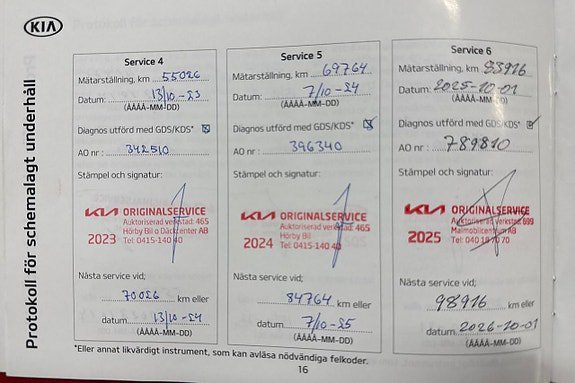 KIA
Protokoll för schemalagt underhåll
Service 4
Mätarställning, km 55026
Datum: 13/10 -23
(ÅÅÅÅ-MM-DD)
Diagnos utförd med GDS/KDS*
AO nr : 342510
Stämpel och signatur:
KIA ORIGINALSERVICE
Auktoriserad verkstad: 465
Hörby Bil o Däckcenter AB
2023 Tel: 0415-140 40
Nästa service vid;
70026 km eller
datum 13/10 -24
(ÅÅÅÅ-MM-DD)
Service 5
Mätarställning, km 69764
Datum: 7/10 -24
(ÅÅÅÅ-MM-DD)
Diagnos utförd med GDS/KDS*
AO nr : 396340
Stämpel och signatur:
KIA ORIGINALSERVICE
Auktoriserad verkstad: 465
Hörby Bil
2024 Tel: 0415-140 40
Nästa service vid;
84764 km eller
datum 7/10-25
(ÅÅÅÅ-MM-DD)
Service 6
Mätarställning, km 83916
Datum: 2025-10-01
(ÅÅÅÅ-MM-DD)
Diagnos utförd med GDS/KDS*
AO nr : 789810
Stämpel och signatur:
KIA ORIGINALSERVICE
Auktoriserad verkstad 699
Malmobilcentrum AB
2025 Tel: 040 18 70 70
Nästa service vid;
98916 km eller
datum 2026-10-01
(ÅÅÅÅ-MM-DD)
*Eller annat likvärdigt instrument, som kan avläsa nödvändiga felkoder.
16